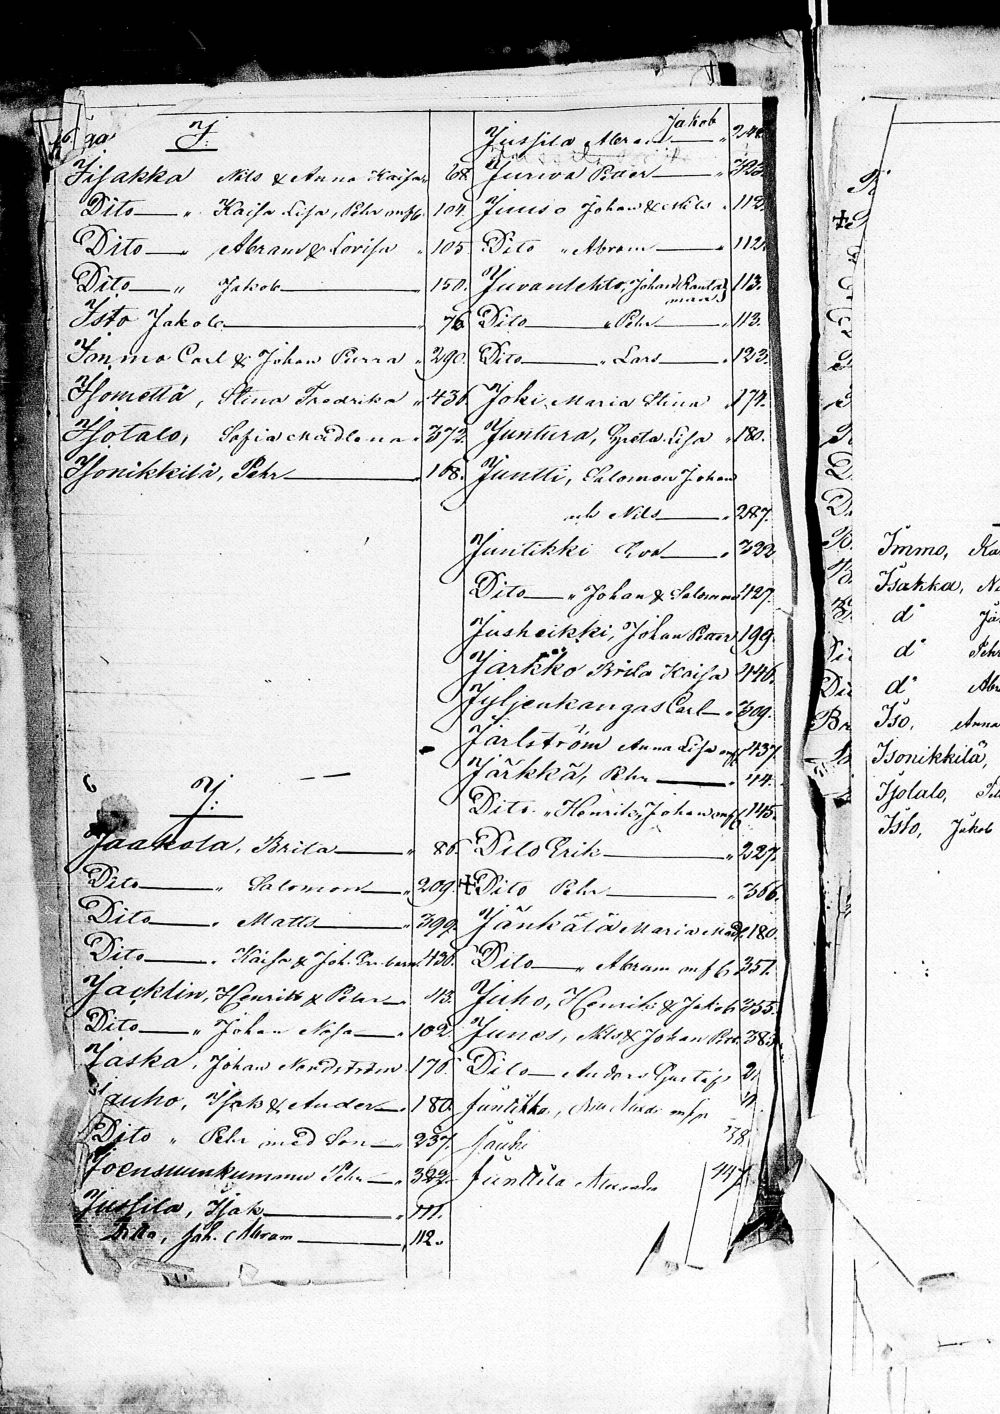 I:
Iisakka Nils & Anna Kaisa 68.
Dito " Kaisa Lisa, Pehr 104.
Dito " Abram & Lovisa 105.
Dito " Jakob 150.
Isto Jakob 76.
Immo Carl & Johan Pierra 290.
Isomettä, Stina Fredrika 436.
Isotalo, Sofia Madlena 372.
Isonikkilä, Pehr 168.
6
J:
Jaakola, Brita 86.
Dito " Salomon 209.
Dito " Matts 399.
Dito " Kaisa & Joh. 430.
Jacklin, Henrik & Peter 43.
Dito " Johan 102.
Jaska, Johan Nordström 170.
Jauho, Isak & Ander 180.
Dito " Pehr med Son 237.
Joensuunkumanu Pehr 322.
Jussila, Isak 111.
Dito, Joh. Abram 112.
Jakob
Jussila Abram
Jurwa Peter
Juuso Johan & Nils 112.
Dito " Abram 112.
Juvanlehto, Johan 113.
Dito " Pehr 113.
Dito " Lars 123.
Joki, Maria Stina 174.
Juntura, Greta Lisa 180.
Juntti, Salomon Johan
och Nils 287.
Juntikki Eva 322
Dito " Johan & Salomon 427.
Jusheikki, Johan Peter 199.
Jarkko Brita Kaisa 446.
Jyljenkangas Carl 309.
Jarlström Anna Lisa 437.
Järkkä, Pehr 44.
Dito " Henrik, Johan 145.
Dito Erik 227.
Dito Pehr 366.
Jänkälä Maria Mad. 180.
Dito " Abram 351.
Juho, Henrik & Jakob 355.
Junes, Nils & Johan 383.
Dito Anders Gustaf
Juntikka,
Jauhi 38
Junttila Alexander 447
Immo, Ka
Isakka, Ni
d:o
d:o Pehr
d:o Abr
Iso, Anna
Isonikkilä,
Isotalo,
Isto, Jakob